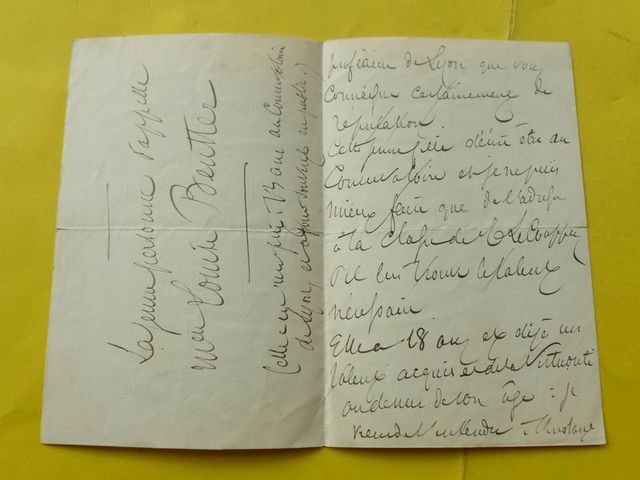 professeur de Lyon que vous
connaissez certainement de
réputation.
Cette jeune fille désire être au
Conservatoire et je ne puis
mieux faire que de l'adresser
à la classe de M Le Couppey
s'il lui trouve la valeur
nécessaire.
Elle a 18 ans et déjà un
talent acquis et de la virtuosité
au dessus de son âge : je
viens de l'entendre
La jeune personne s'appelle
Melle Louise
(elle a eu un prix à 13 ans au Conservatoire
de Lyon, et a joué souvent en public.)